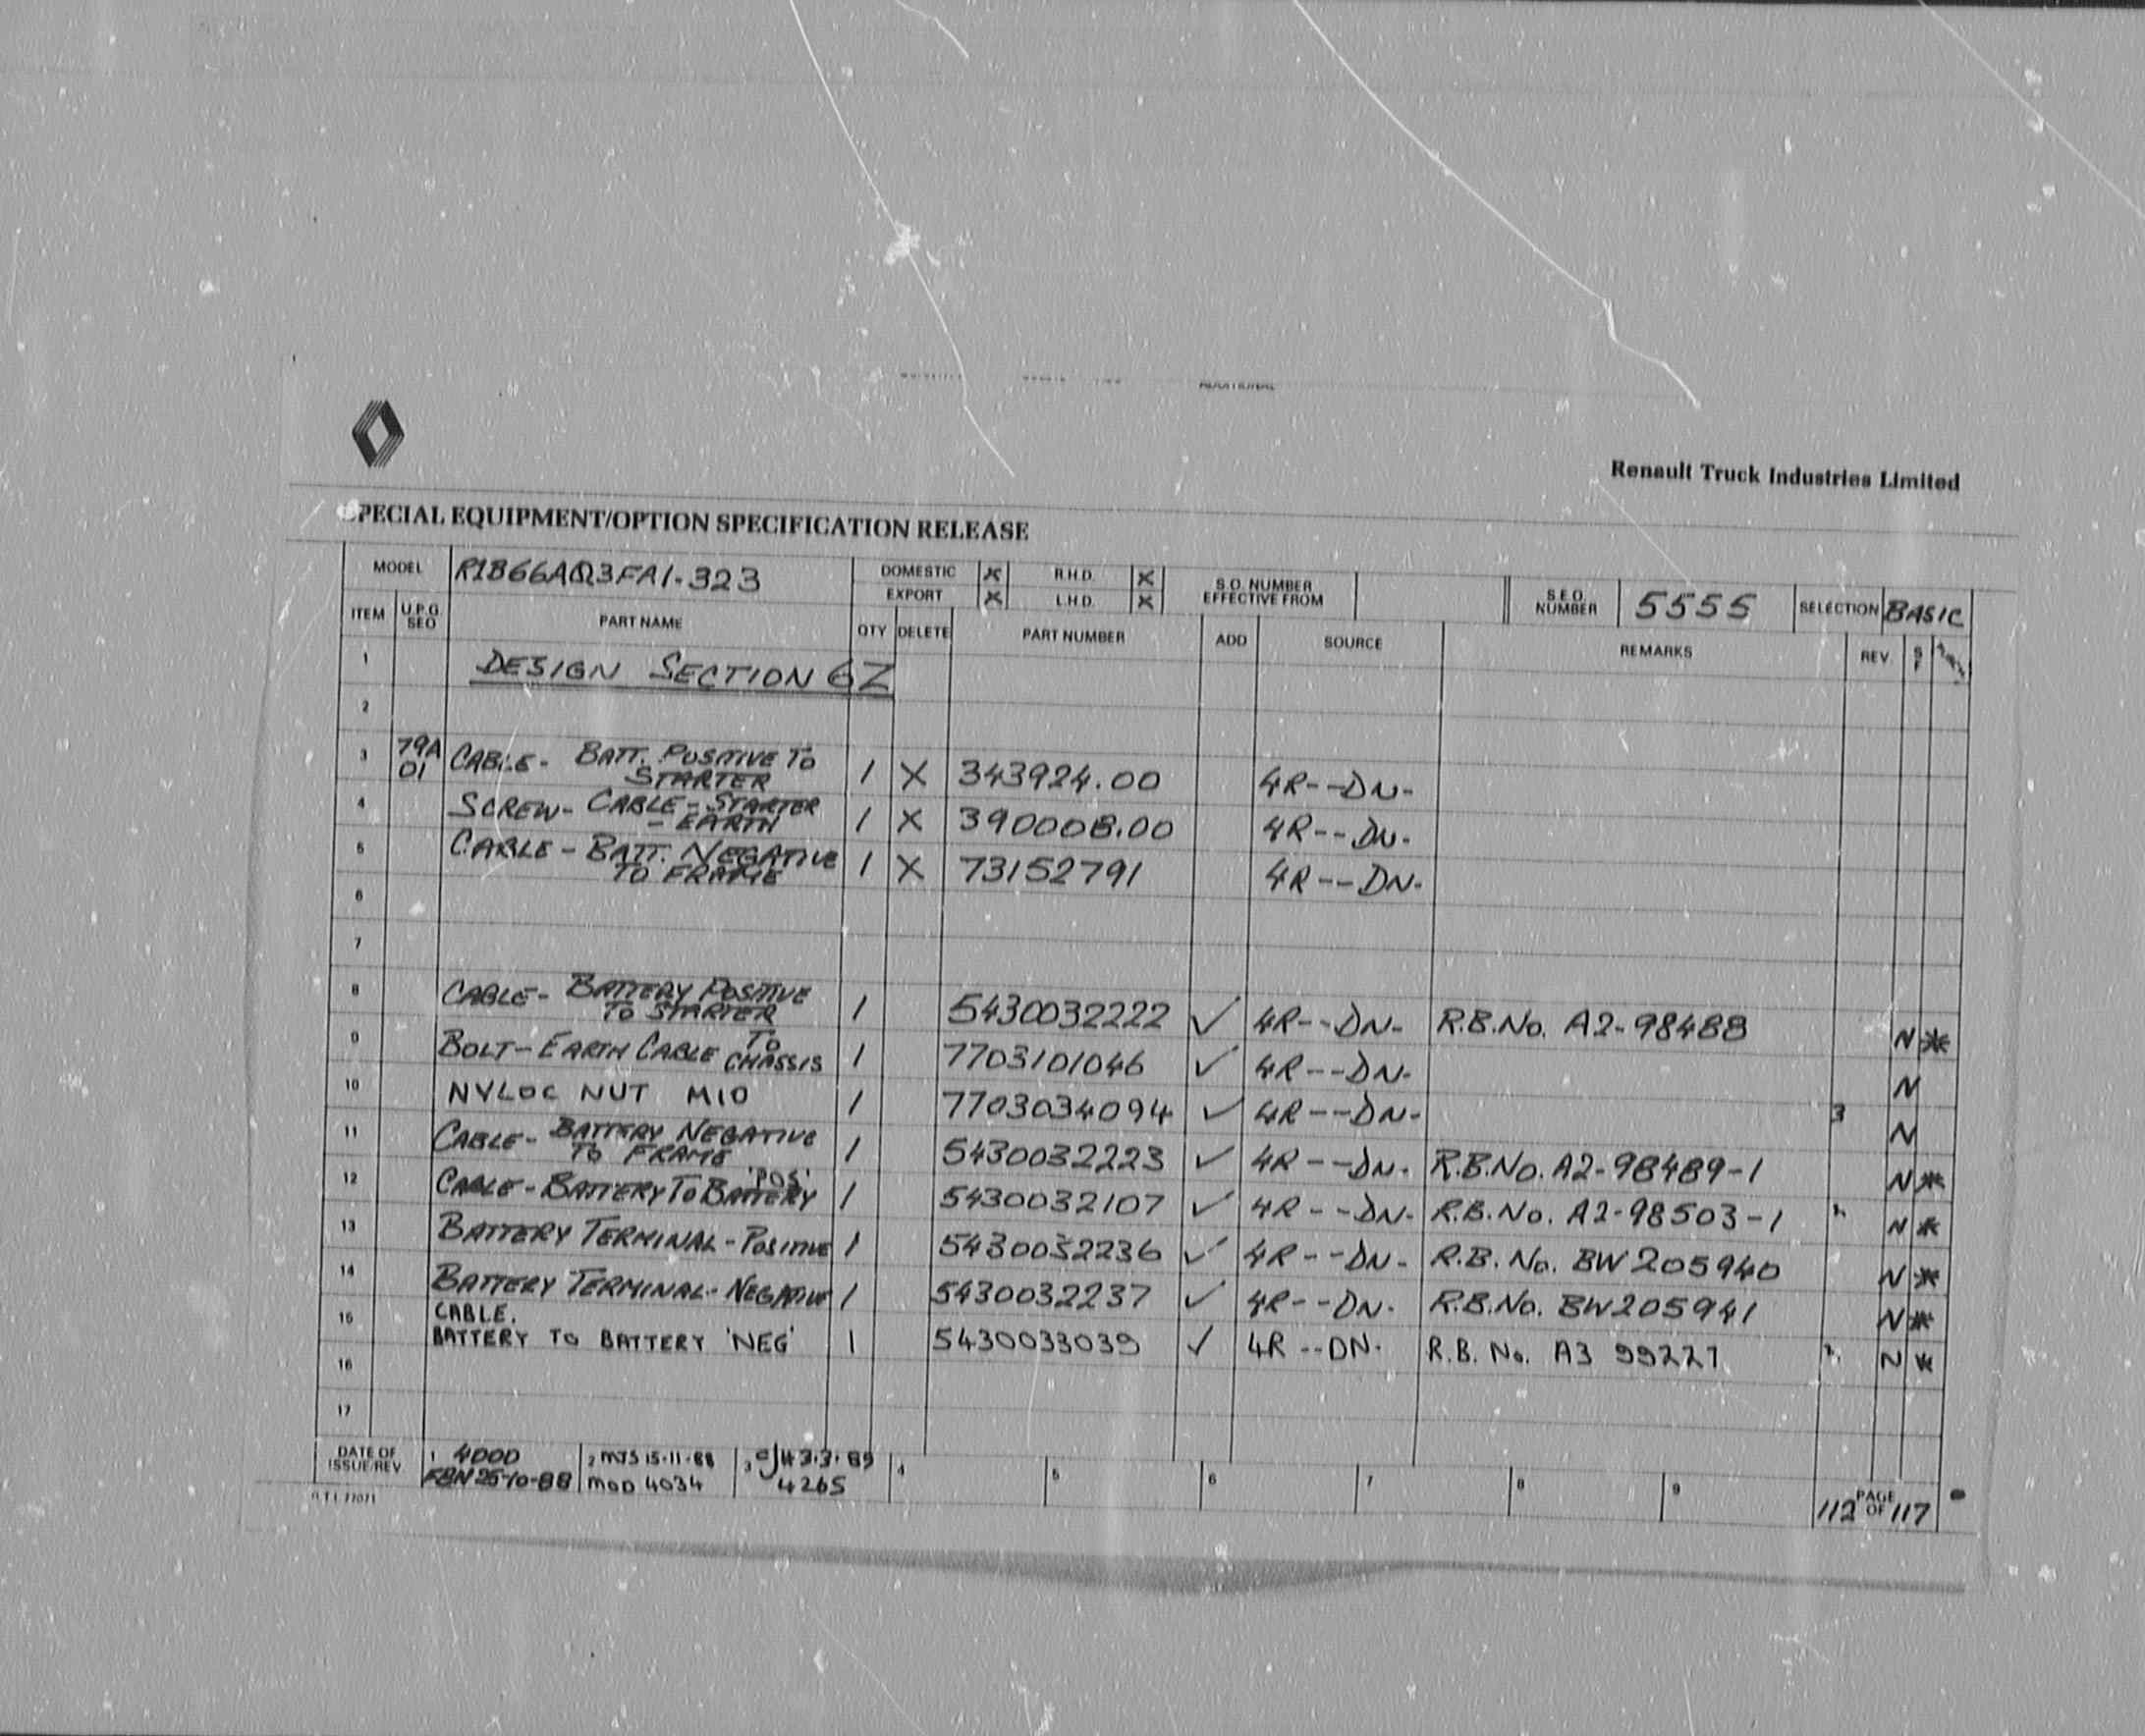 ADDITIONAL
Renault Truck Industries Limited
SPECIAL EQUIPMENT/OPTION SPECIFICATION RELEASE
MODEL R1B66AQ3FA1-323 DOMESTIC X R.H.D. X S.O. NUMBER EFFECTIVE FROM S.E.O. NUMBER 5555 SELECTION BASIC
EXPORT X L.H.D. X
ITEM U.P.G. SEQ PART NAME QTY DELETE PART NUMBER ADD SOURCE REMARKS REV. S F
1 DESIGN SECTION 6Z
2
3 79A 01 CABLE - BATT. POSITIVE TO STARTER 1 X 343924.00 4R--DN-
4 SCREW - CABLE - STARTER - EARTH 1 X 390008.00 4R--DN-
5 CABLE - BATT. NEGATIVE TO FRAME 1 X 73152791 4R--DN-
6
7
8 CABLE - BATTERY POSITIVE TO STARTER 1 5430032222 ✓ 4R--DN- R.B.No. A2-98488 N *
9 BOLT - EARTH CABLE TO CHASSIS 1 7703101046 ✓ 4R--DN- N
10 NYLOC NUT M10 1 7703034094 ✓ 4R--DN- 3 N
11 CABLE - BATTERY NEGATIVE TO FRAME 1 5430032223 ✓ 4R--DN- R.B.No. A2-98489-1 N *
12 CABLE - BATTERY TO BATTERY 'POS' 1 5430032107 ✓ 4R--DN- R.B.No. A2-98503-1 2 N *
13 BATTERY TERMINAL - POSITIVE 1 5430032236 ✓ 4R--DN- R.B.No. BW205940 N *
14 BATTERY TERMINAL - NEGATIVE 1 5430032237 ✓ 4R--DN- R.B.No. BW205941 N *
15 CABLE. BATTERY TO BATTERY 'NEG' 1 5430033039 ✓ 4R--DN- R.B. No. A3 99227 2 N *
16
17
DATE OF ISSUE/REV 1 4000 2 MJS 15-11-88 3 3.3.89 4 5 6 7 8 9 112 PAGE OF 117
25-10-88 MOD 4034 4265
R.T.I. 77071